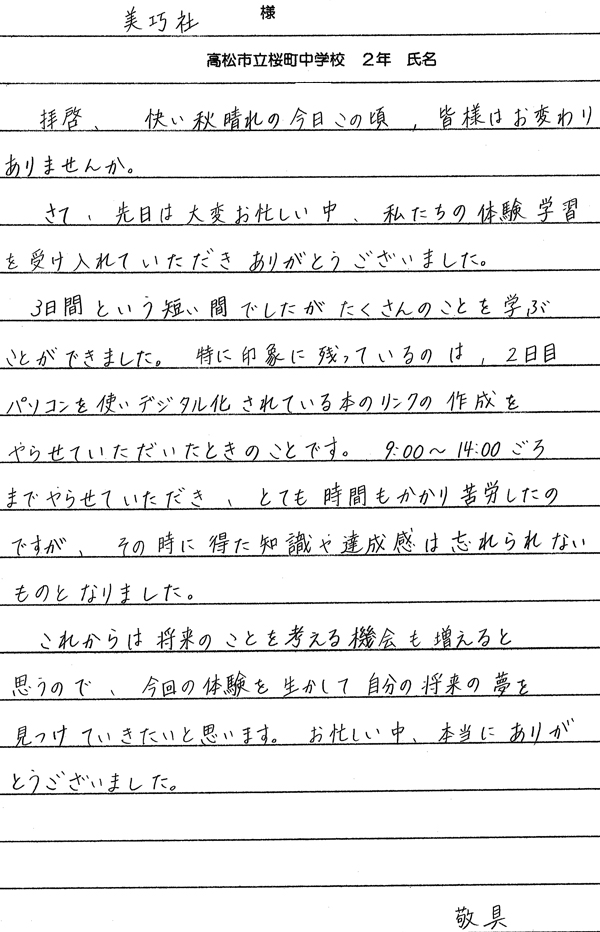 美巧社 様
高松市立桜町中学校 2年 氏名
拝啓、 快い秋晴れの今日この頃、皆様はお変わり
ありませんか。
さて、先日は大変お忙しい中、私たちの体験学習
を受け入れていただきありがとうございました。
3日間という短い間でしたがたくさんのことを学ぶ
ことができました。 特に印象に残っているのは、2日目
パソコンを使いデジタル化されている本のリンクの作成を
やらせていただいたときのことです。 9:00~14:00ごろ
までやらせていただき、とても時間もかかり苦労したの
ですが、その時に得た知識や達成感は忘れられない
ものとなりました。
これからは将来のことを考える機会も増えると
思うので、今回の体験を生かして自分の将来の夢を
見つけていきたいと思います。 お忙しい中、本当にありが
とうございました。
敬具